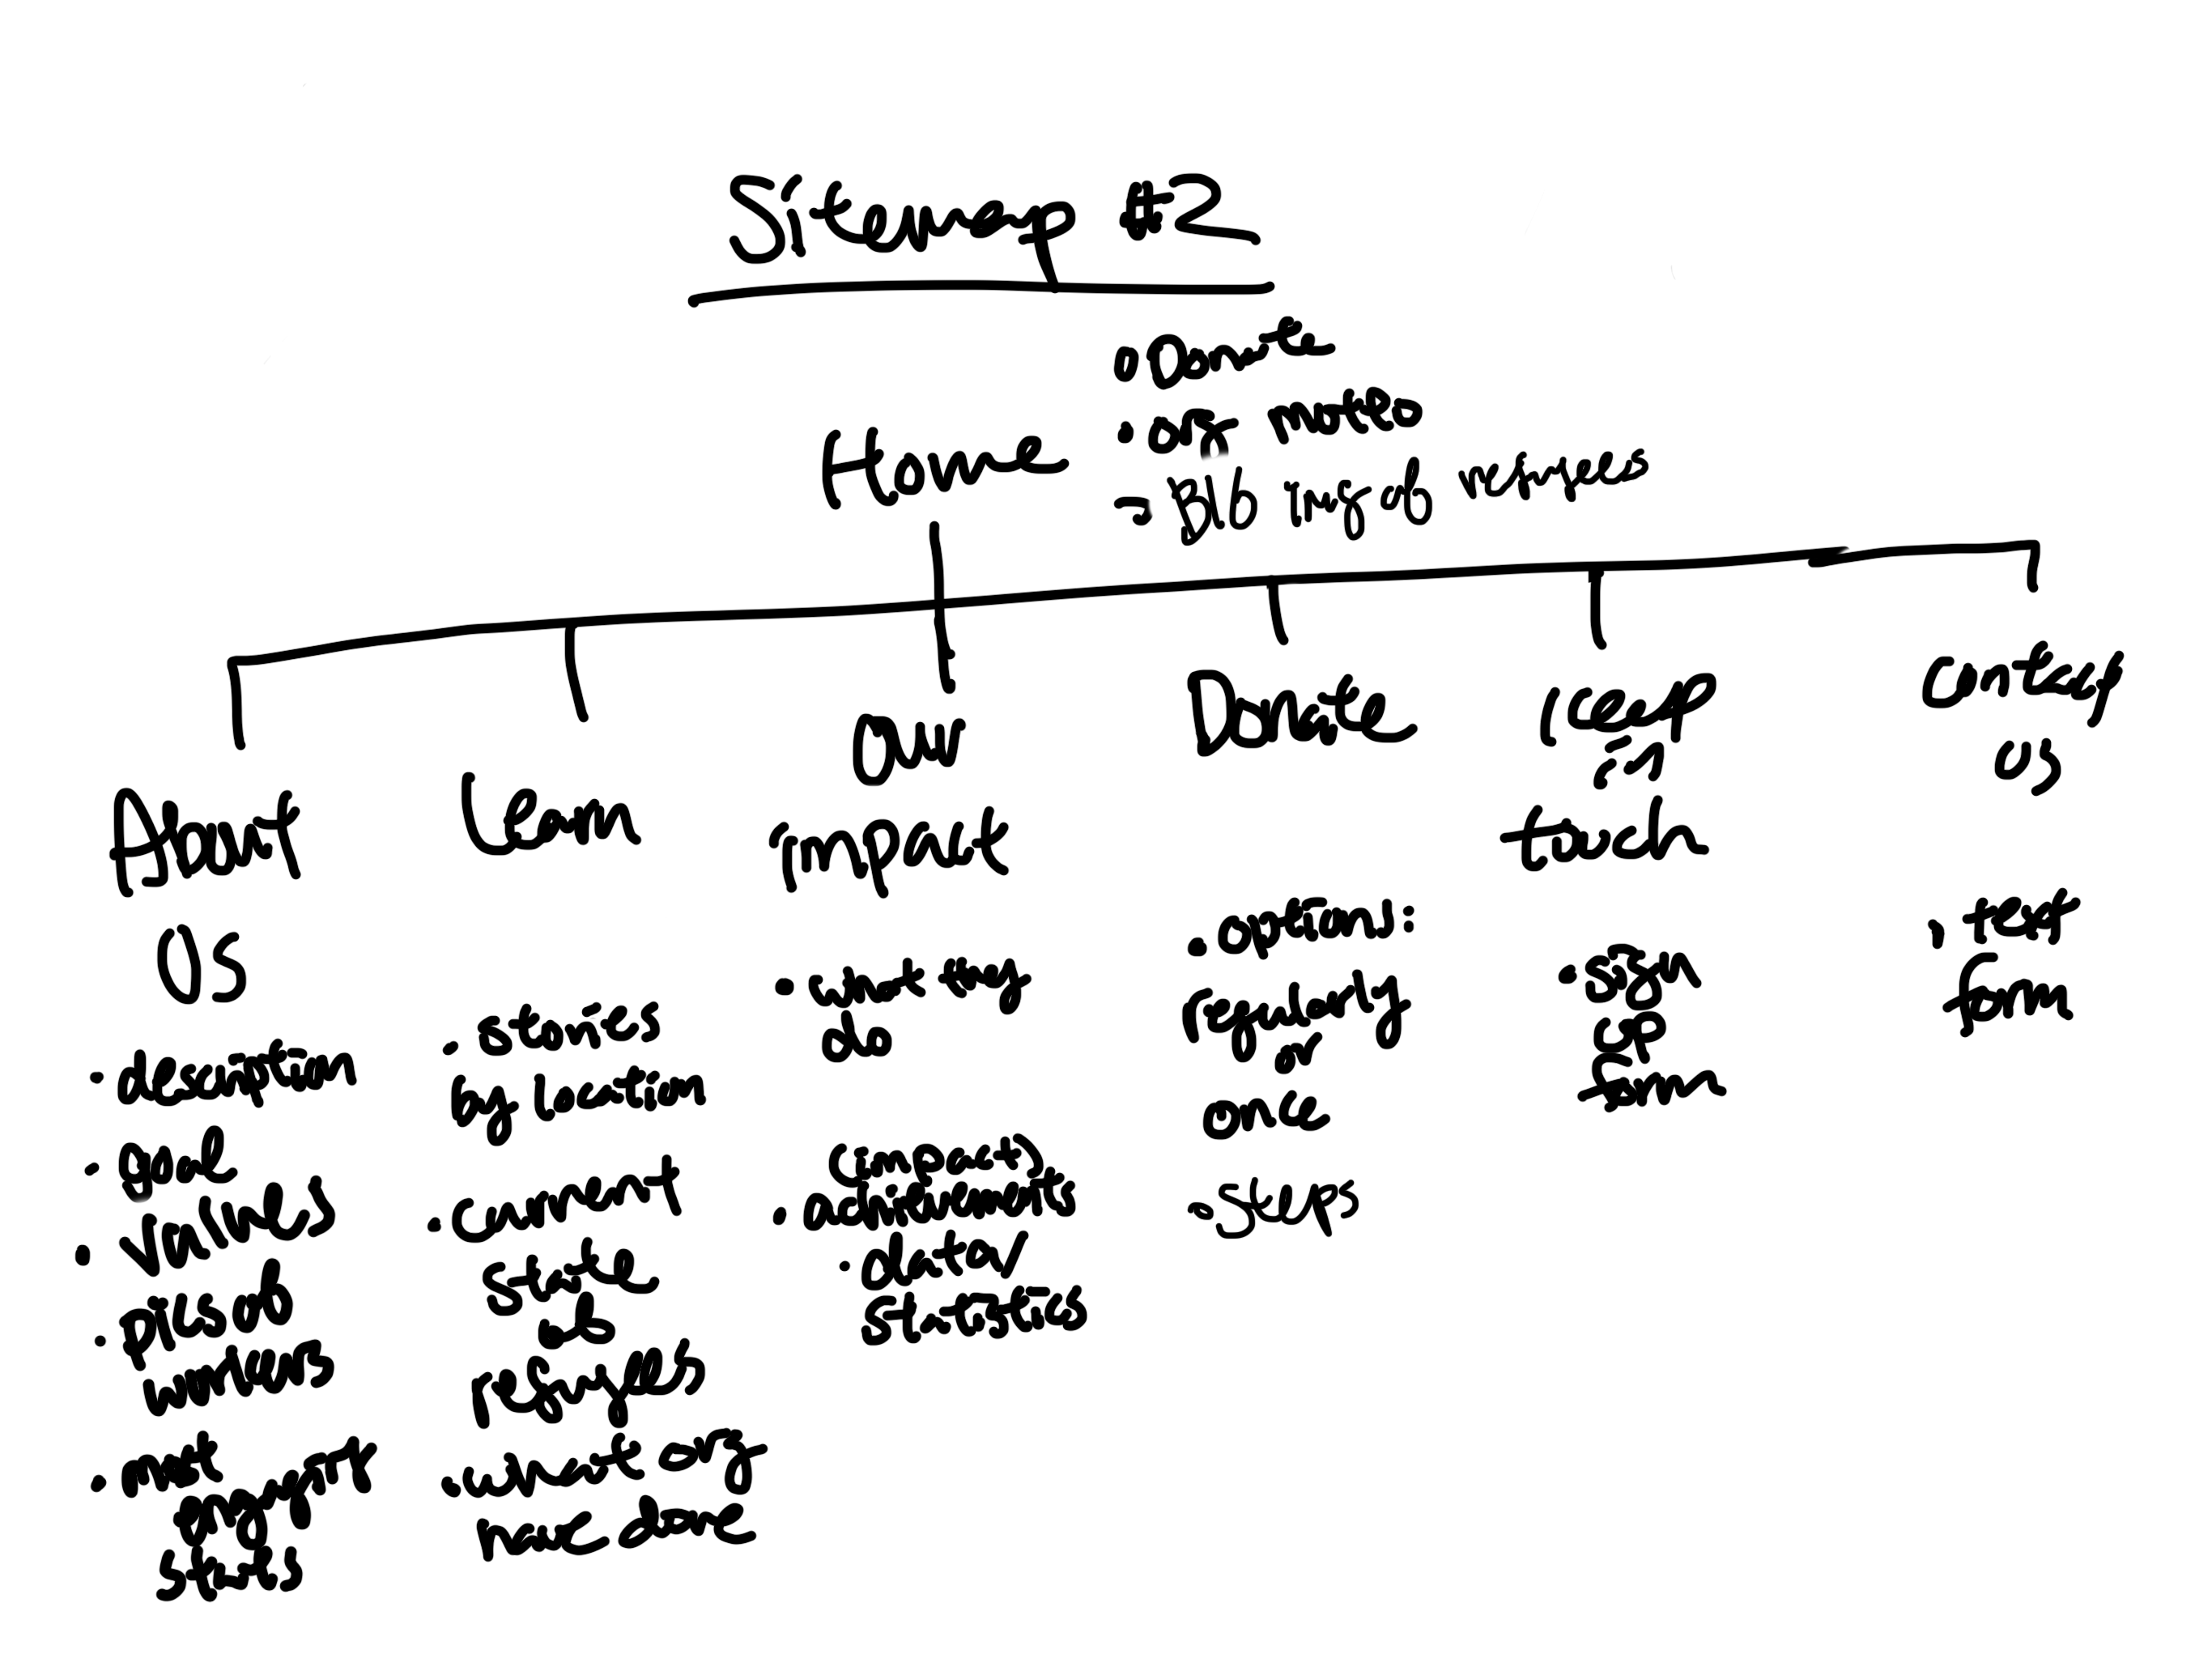 Sitemap #2
Home
• Donate
• org motto
- Bib img of refugees
About
Us
• description
• goal
• values
• pics of
workers
•
stats
Learn
• stories
by location
• current
state
of
refugees
• what org
have done
Our
impact
• what they
do
(impact)
• achievements
• data/
statistics
Donate
• options:
regularly
or
once
• Steps
Keep
in
touch
• sign
up
form
Contact
us
• text
form